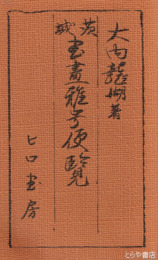 大内龍湖著
茨城書畫雅号便覧
ヒロ書房
とらや書店